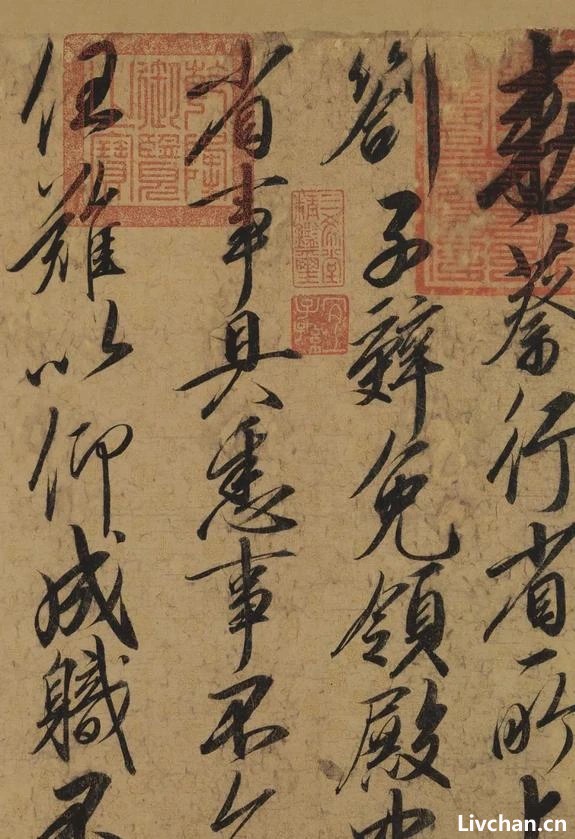 敕蔡行省所上
劄子辭免領殿中
省事具悉事不久
任難以仰成職不
乾隆御覽之寶
三希堂精鑑璽
宜子孫
Livchan.cn